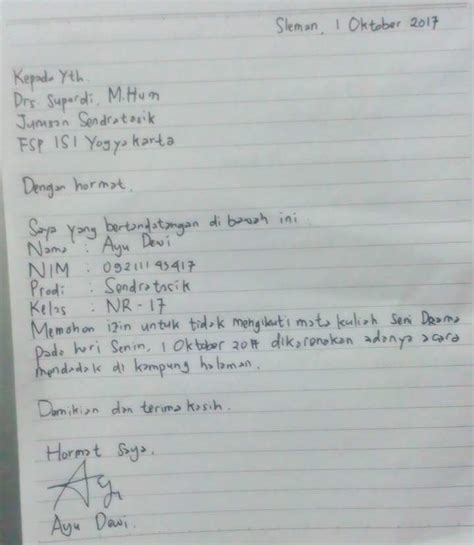 Sleman, 1 Oktober 2017
Kepada Yth.
Drs. Supardi, M.Hum
Jurusan Sendratasik
FSP ISI Yogyakarta
Dengan hormat.
Saya yang bertandatangan di bawah ini :
Nama : Ayu Dewi
NIM : 09211145417
Prodi : Sendratasik
Kelas : NR - 17
Memohon izin untuk tidak mengikuti mata kuliah Seni Drama
pada hari Senin, 1 Oktober 2017 dikarenakan adanya acara
mendadak di kampung halaman.
Demikian dan terima kasih.
Hormat saya,
Ay
Ayu Dewi.